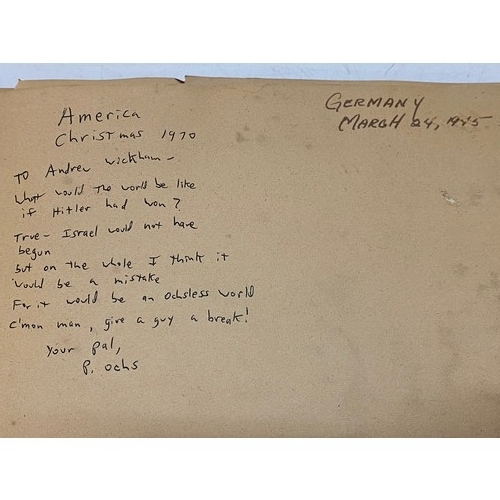 America
Christmas 1970
GERMANY
MARCH 24, 1945
To Andrew Wickham -
What would the world be like
if Hitler had won?
True - Israel would not have
begun
but on the whole I think it
would be a mistake
For it would be an Ochsless world
c'mon man, give a guy a break!
Your pal,
P. Ochs